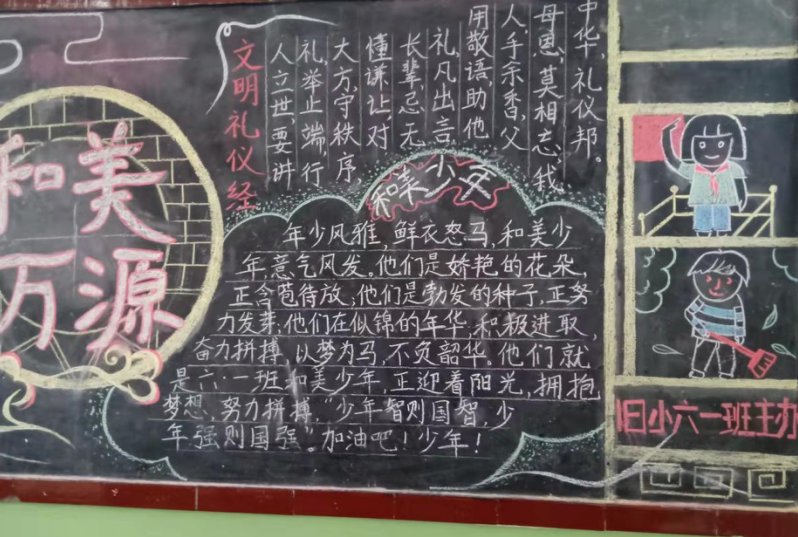 和美
万源
文明礼仪经
人立世,要讲
礼,举止端,行
大方,守秩序
懂谦让,对
长辈,忌无
礼,凡出言
用敬语,助他
人,手余香,父
母恩,莫相忘,我
中华,礼仪邦。
和美少年
年少风雅,鲜衣怒马,和美少
年,意气风发。他们是娇艳的花朵,
正含苞待放,他们是勃发的种子,正努
力发芽,他们在似锦的年华,积极进取,
奋力拼搏,以梦为马,不负韶华。他们就
是六·一班和美少年,正迎着阳光,拥抱
梦想,努力拼搏,“少年智则国智,少
年强则国强”。加油吧!少年!
旧小六一班主办